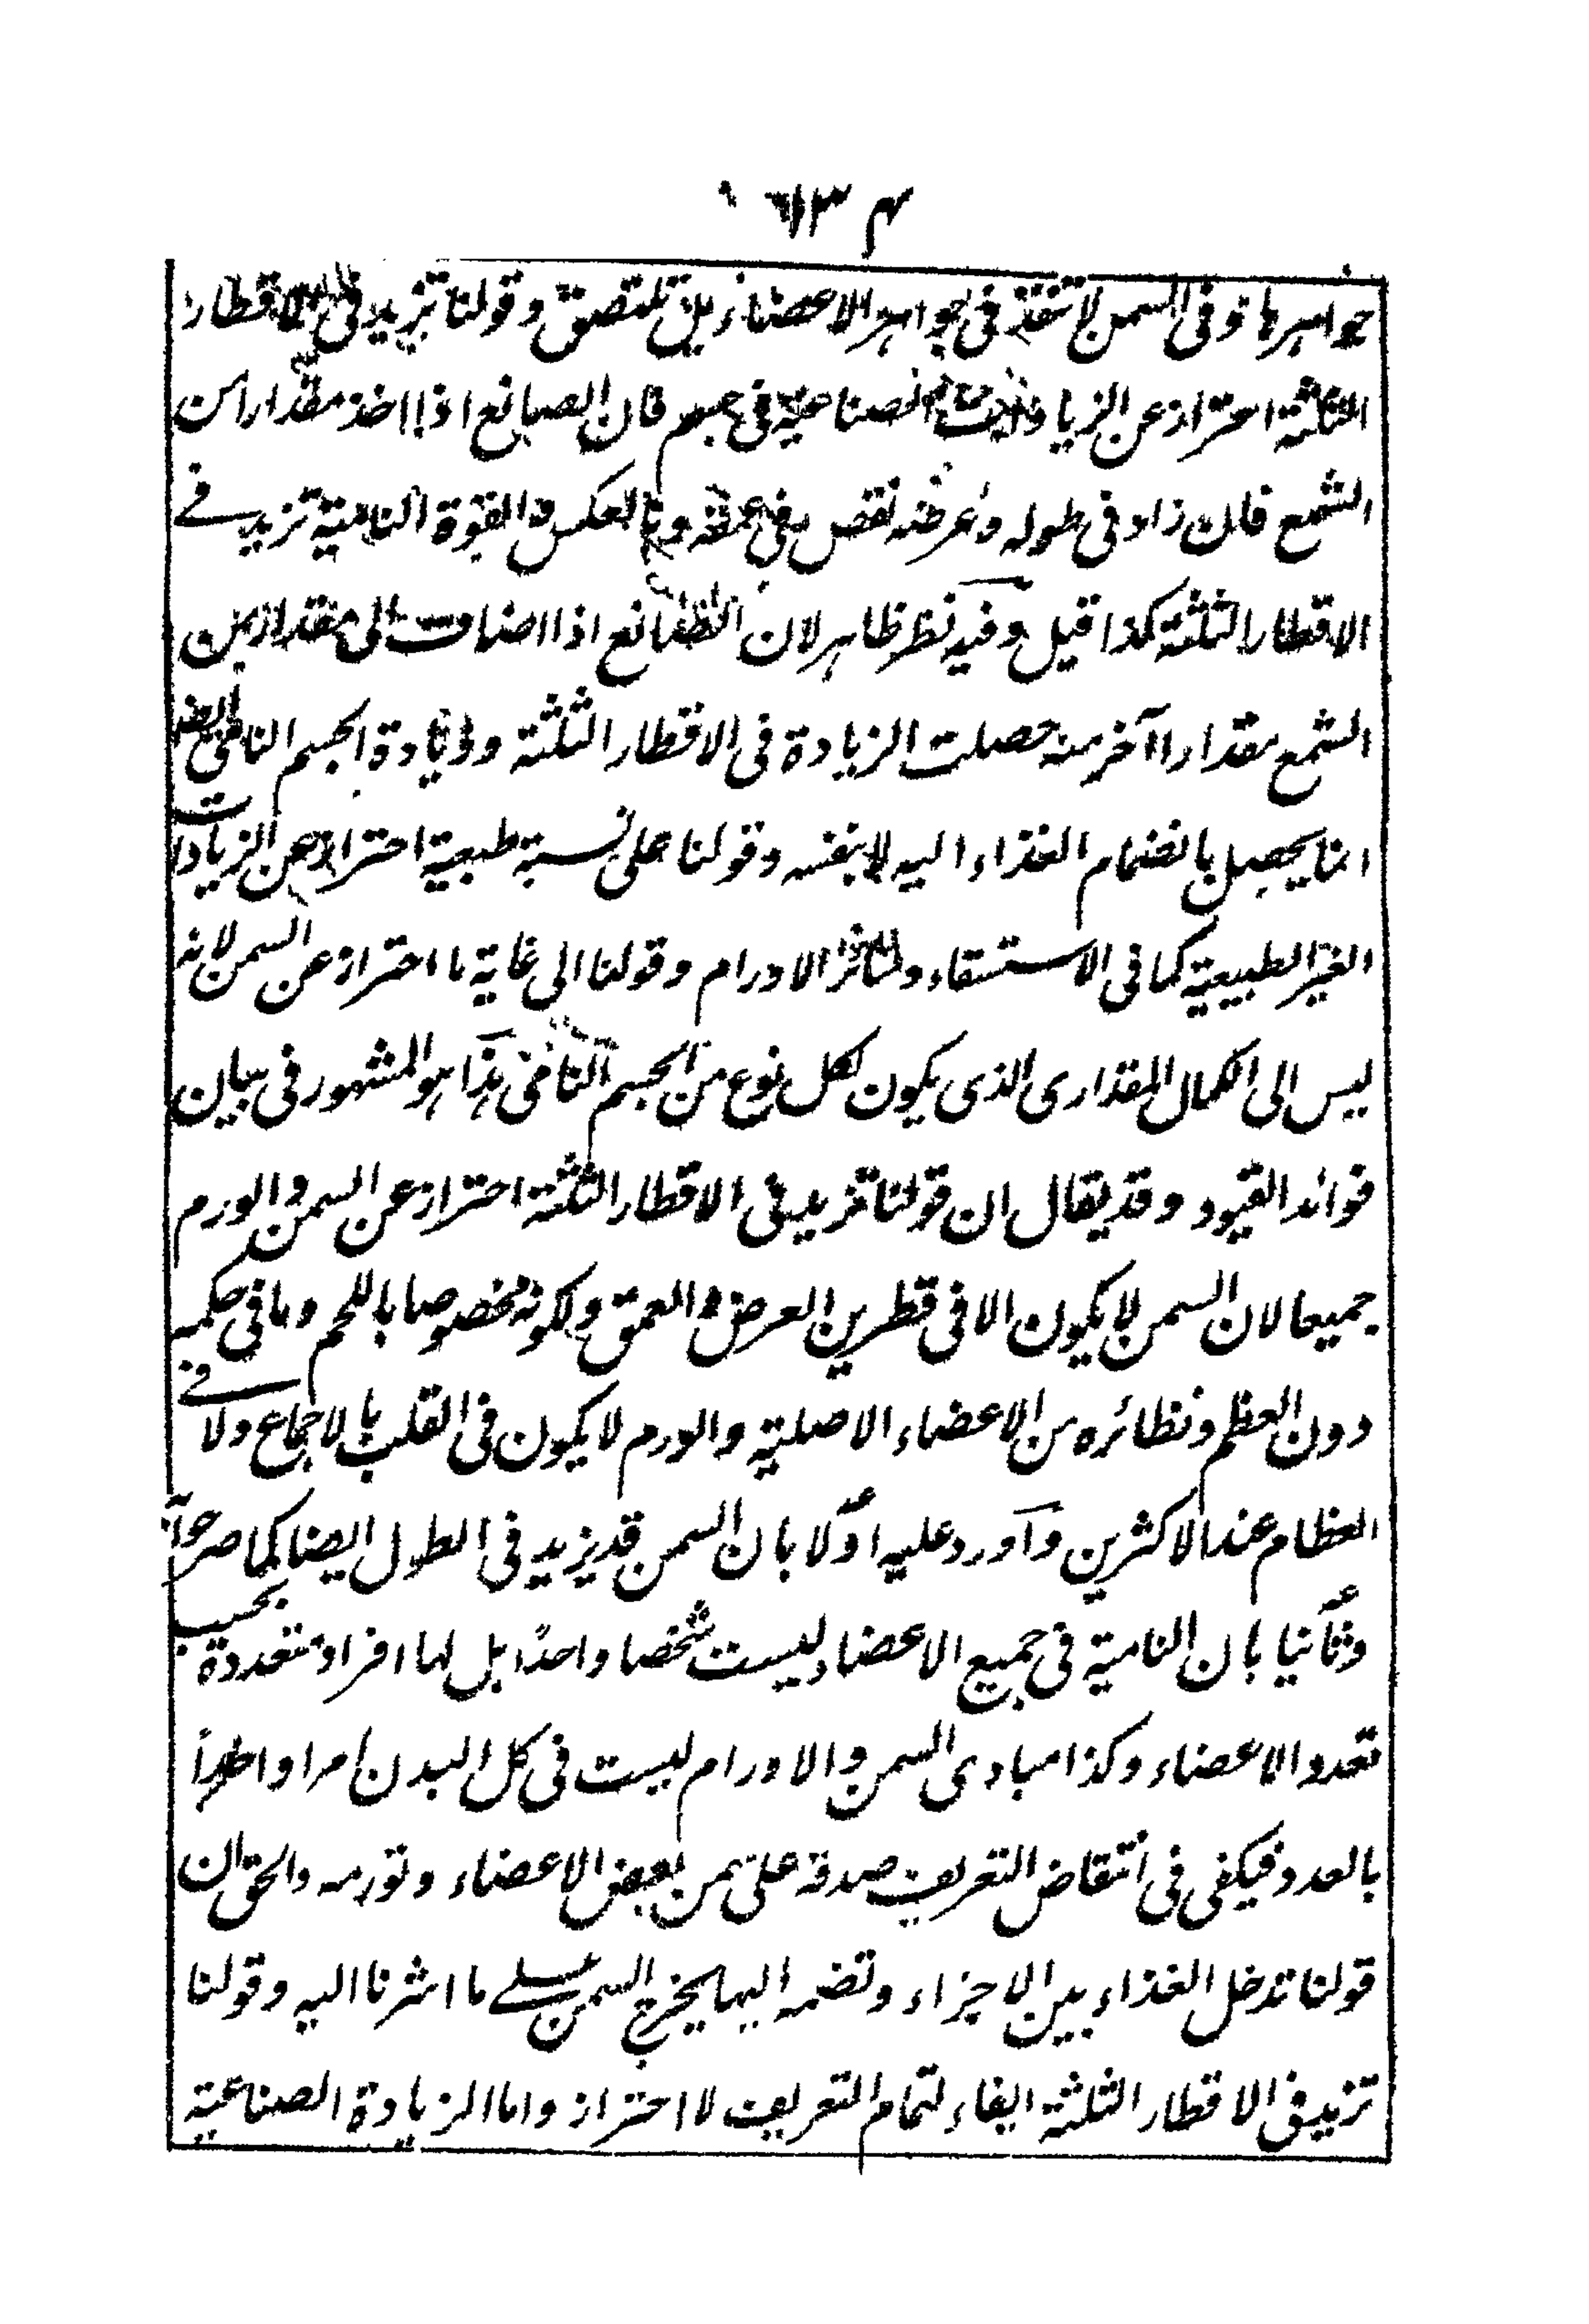 جواهرها وفى السمن لا تنفذ فى جواهر الاعضاء بل تلتصق وقولنا تزيد فى الاقطار
الثلثة احتراز عن الزيادات الصناعية فى جسم فان الصانع اذا اخذ مقدارا من
الشمع فان زاد فى طوله وعرضه نقص فى عمقه وبالعكس والقوة النامية تزيد فى
الاقطار الثلثة كذا قيل وفيه نظر ظاهر لان الصانع اذا اضاف الى مقدار من
الشمع مقدارا آخر منه حصلت الزيادة فى الاقطار الثلثة وزيادة الجسم النامى ايضا
انما يحصل بانضمام الغذاء اليه لا بنفسه وقولنا على نسبة طبعية احتراز عن الزيادات
الغير الطبيعية كما فى الاستسقاء وسائر الاورام وقولنا الى غاية ما احتراز عن السمن لانه
ليس الى الكمال المقدارى الذى يكون لكل نوع من الجسم النامى هذا هو المشهور فى بيان
فوائد القيود وقد يقال ان قولنا تزيد فى الاقطار الثلثة احتراز عن السمن والورم
جميعا لان السمن لا يكون الا فى قطرين العرض والعمق ولكونه مخصوصا باللحم وما فى حكمه
دون العظم ونظائره من الاعضاء الاصلية والورم لا يكون فى القلب بالاجماع ولا فى
العظام عند الاكثرين وآورد عليه اوّلا بان السمن قد يزيد فى الطول ايضا كما صرحوا به
وثانيا بان النامية فى جميع الاعضاء ليست شخصا واحدًا بل لها افراد متعددة بحسب
تعدد الاعضاء وكذا مبادى السمن والاورام ليست فى كل البدن امرا واحدًا
بالعدد فيكفى فى انتقاض التعريف صدقه على سمن بعض الاعضاء وتورمه والحق ان
قولنا تدخل الغذاء بين الاجزاء وتضمه اليها يخرج السمن على ما اشرنا اليه وقولنا
تزيد فى الاقطار الثلثة ايفاء لتمام التعريف لا احتراز واما الزيادة الصناعية